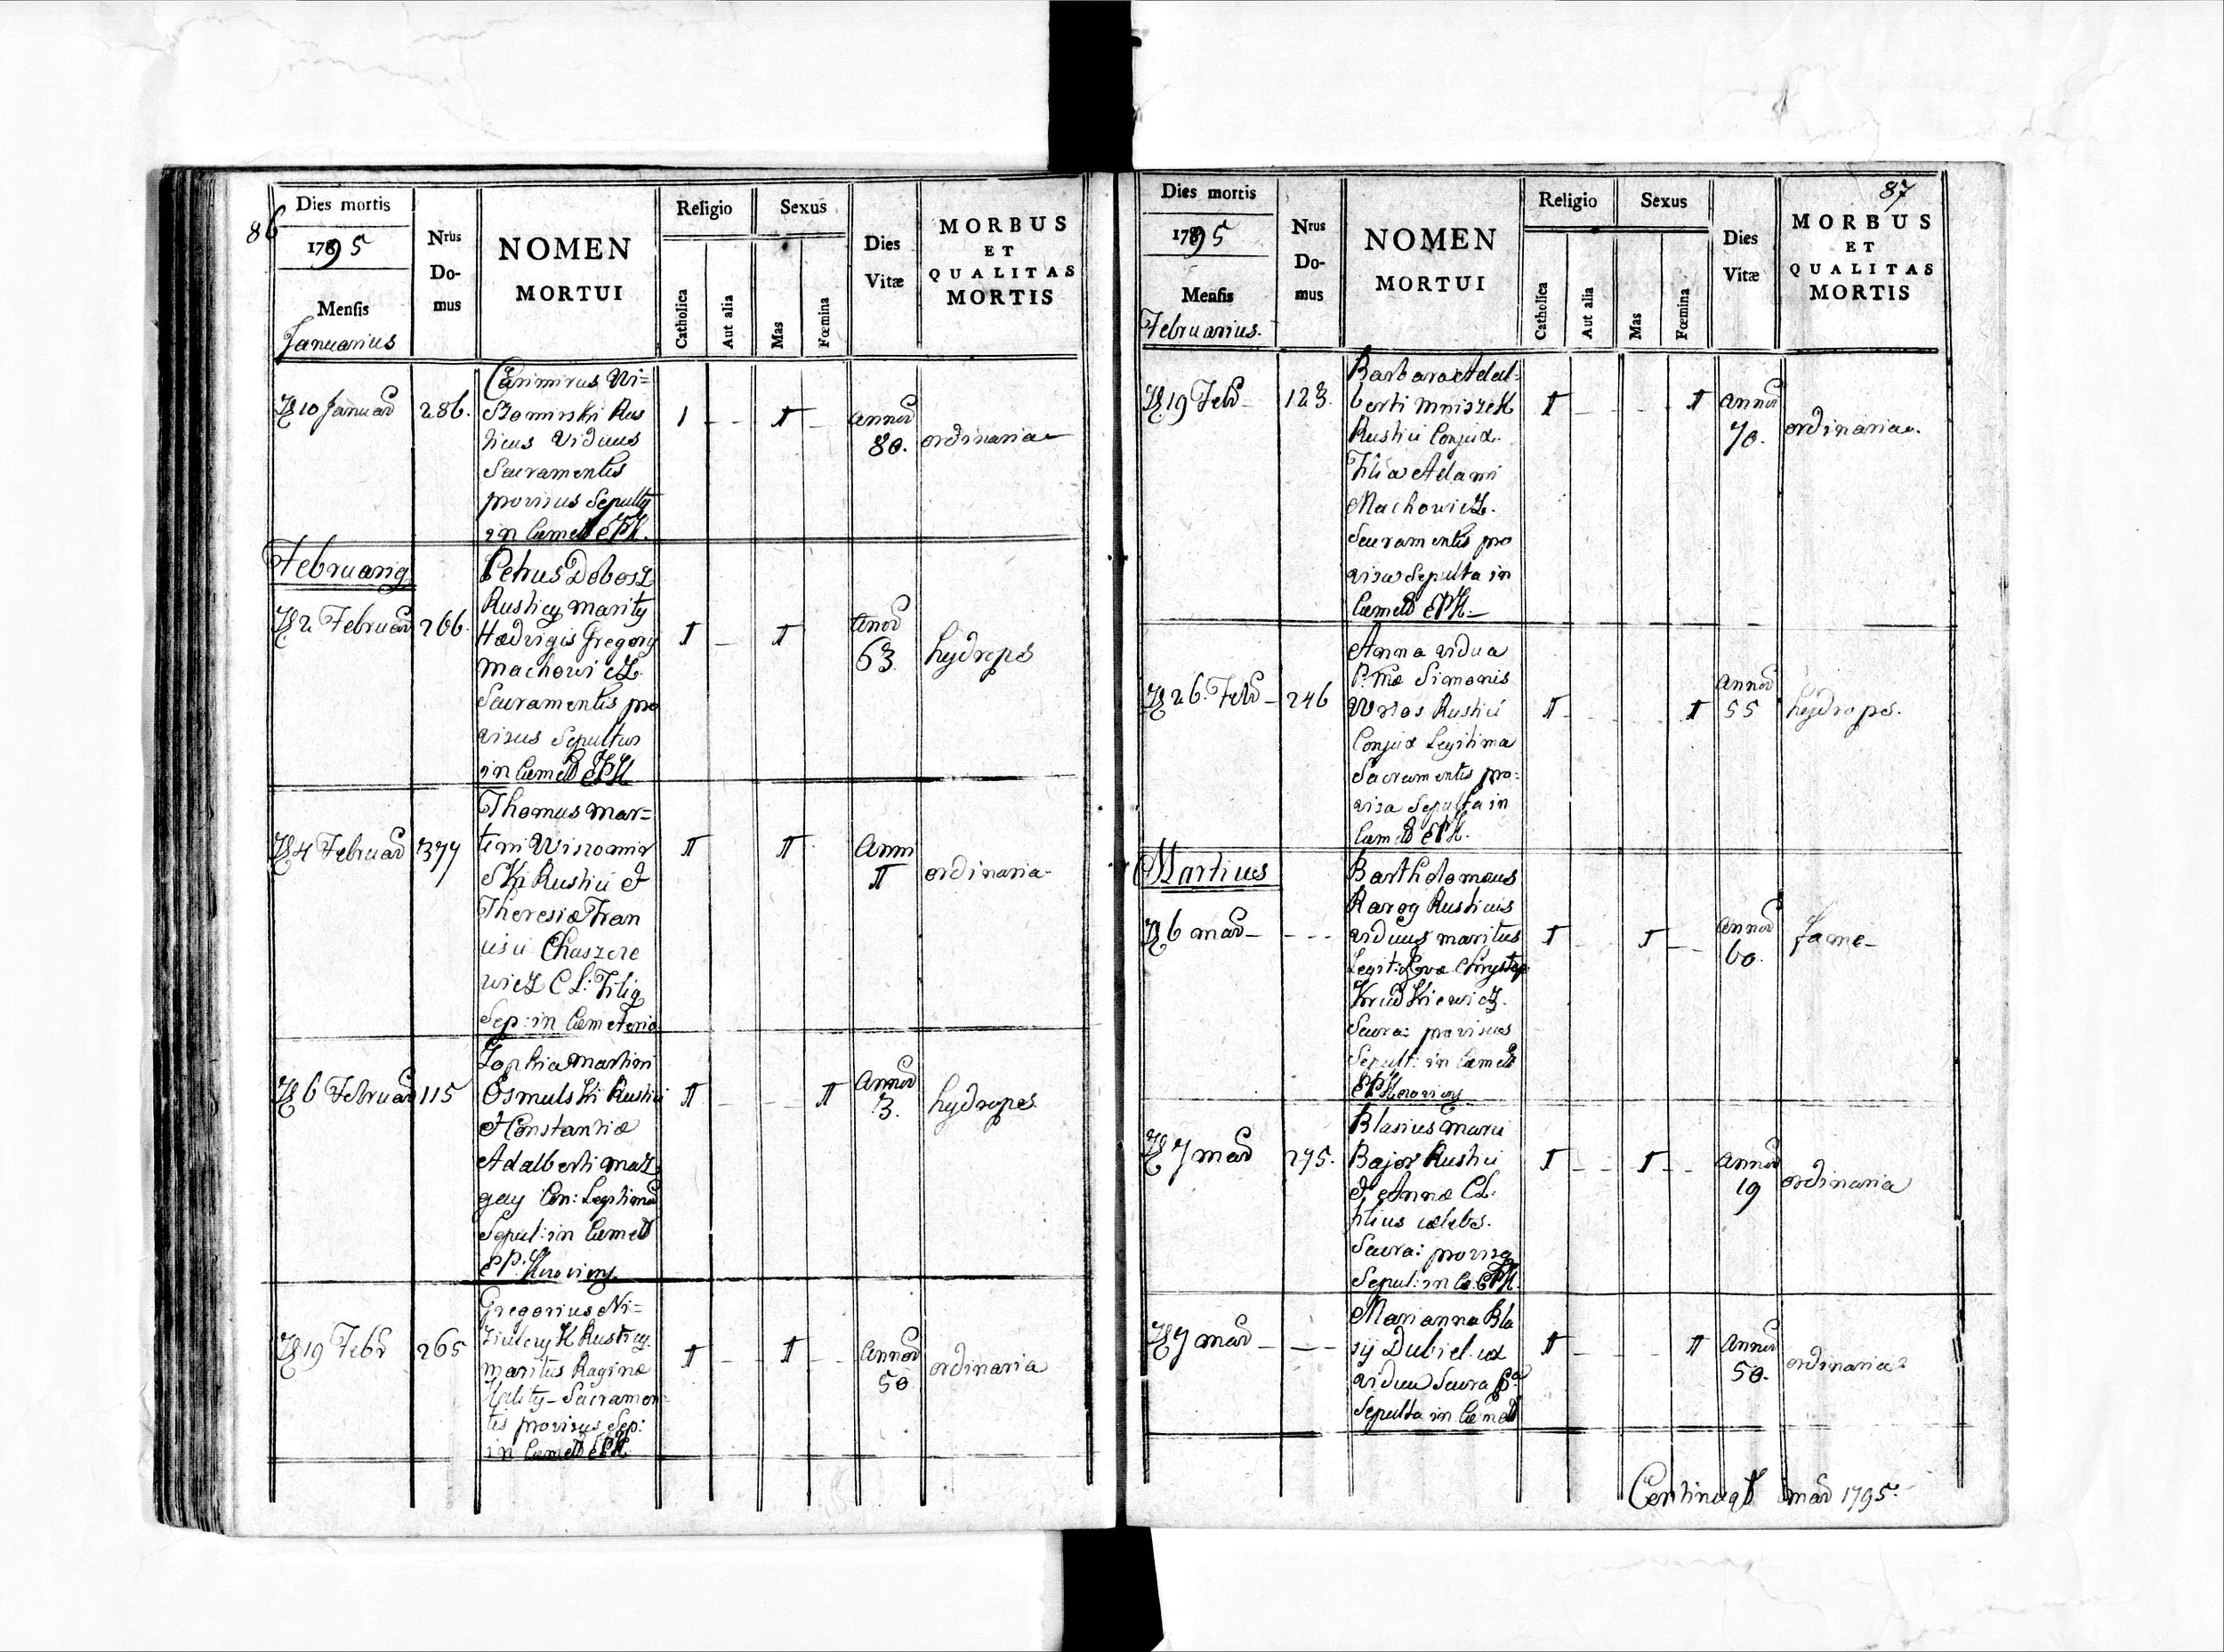 86
Dies mortis
1795
Mensis
Januarius
Nrus
Do-
mus
NOMEN
MORTUI
Religio
Catholica
Aut alia
Sexus
Mas
Fœmina
Dies
Vitæ
MORBUS
ET
QUALITAS
MORTIS
10 Januar
286.
Casimirus Wi=
Szominski Rus
ticus Viduus
Sacramentis
provisus Sepult
in Cœmet EPK.
1
I
annor
80.
ordinaria
Februari
2 Februar
266.
Petrus Dobosz
Rustic marit
Hedvigis Gregory
Machowicz
Sacramentis pro
visus Sepultus
in Cœmet EPK
I
I
63
hydrops
4 Februar
377
Thomas Mar=
tini
Ski Rustici et
Theresiæ Fran
cisci Chaszcze
wicz C L: Fili
Sep: in Cœmeterio
I
I
Anni
II
ordinaria
6 Februar
115
Zophia Martini
Osmulski Rustici
et Constantiæ
Adalberti Maz
gay Con: Legitima
Sepul: in Cœmet
EP:
I
I
Annor
3.
hydrops
19 Febr
265
Gregorius Ni=
Rustic
maritus Raginæ
Sacramen=
tis provisus Sep:
in Cœmet EPK.
I
I
Annor
50
ordinaria
87
Dies mortis
1795
Mensis
Februarius.
Nrus
Do-
mus
NOMEN
MORTUI
Religio
Catholica
Aut alia
Sexus
Mas
Fœmina
Dies
Vitæ
MORBUS
ET
QUALITAS
MORTIS
19 Febr
123.
Barbara Adal=
berti Mniszek
Rustici Conjux.
Filia Adami
Machowicz.
Sacramentis pro
visa Sepulta in
Cœmet EPK.
I
I
annor
70.
ordinaria.
26. Febr
246
Anna vidua
P: mæ Simonis
Wrlos Rustici
Conjux Legitima
Sacramentis pro=
visa Sepulta in
Cœmet EPK.
I
I
Annor
55
hydrops.
Martius
6 mar
Bartholomæus
Rarog Rusticus
viduus maritus
Legit: Evæ Chrystop
Krudkiewicz.
Sacra: provisus
Sepult: in Cœmet
I
I
annor
60.
fame
7 mar
295.
Blasius Marci
Bajor Rustici
et Annæ CL:
filius cœlebs.
Sacra: provis
Sepul: in Cœ: EPK.
I
I
annor
19
ordinaria
7 mar
Marianna Bla
sij Dubiel ux
vidua Sacra P:a
Sepulta in Cœmet
I
I
Annor
50.
ordinaria
Continuat mar 1795.